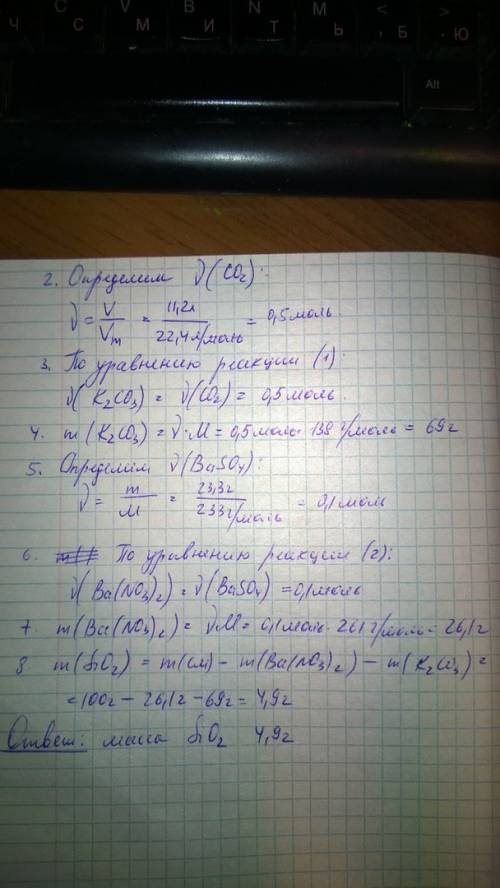 Ч С М И Т Ь , Б . Ю
C V B N M < >
Alt
2. Определим ν(CO₂):
ν = V/Vm = 11,2л/22,4л/моль = 0,5 моль.
3. По уравнению реакции (1):
ν(K₂CO₃) = ν(CO₂) = 0,5 моль.
4. m(K₂CO₃) = ν·M = 0,5 моль · 138 г/моль = 69г
5. Определим ν(BaSO₄):
ν = m/M = 23,3г/233г/моль = 0,1 моль
6. По уравнению реакции (2):
ν(Ba(NO₃)₂) = ν(BaSO₄) = 0,1 моль
7. m(Ba(NO₃)₂) = νM = 0,1 моль · 261 г/моль = 26,1г
8 m(SiO₂) = m(см) − m(Ba(NO₃)₂) − m(K₂CO₃) =
= 100г − 26,1г − 69г = 4,9г
Ответ: масса SiO₂ 4,9г